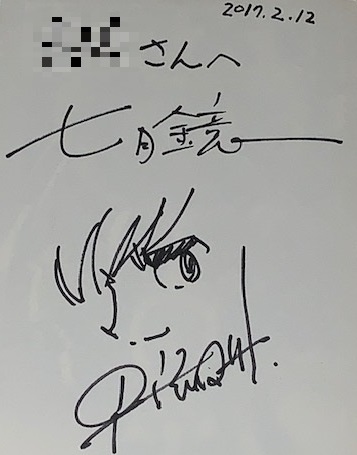 2017.2.12
さんへ
七月鏡一